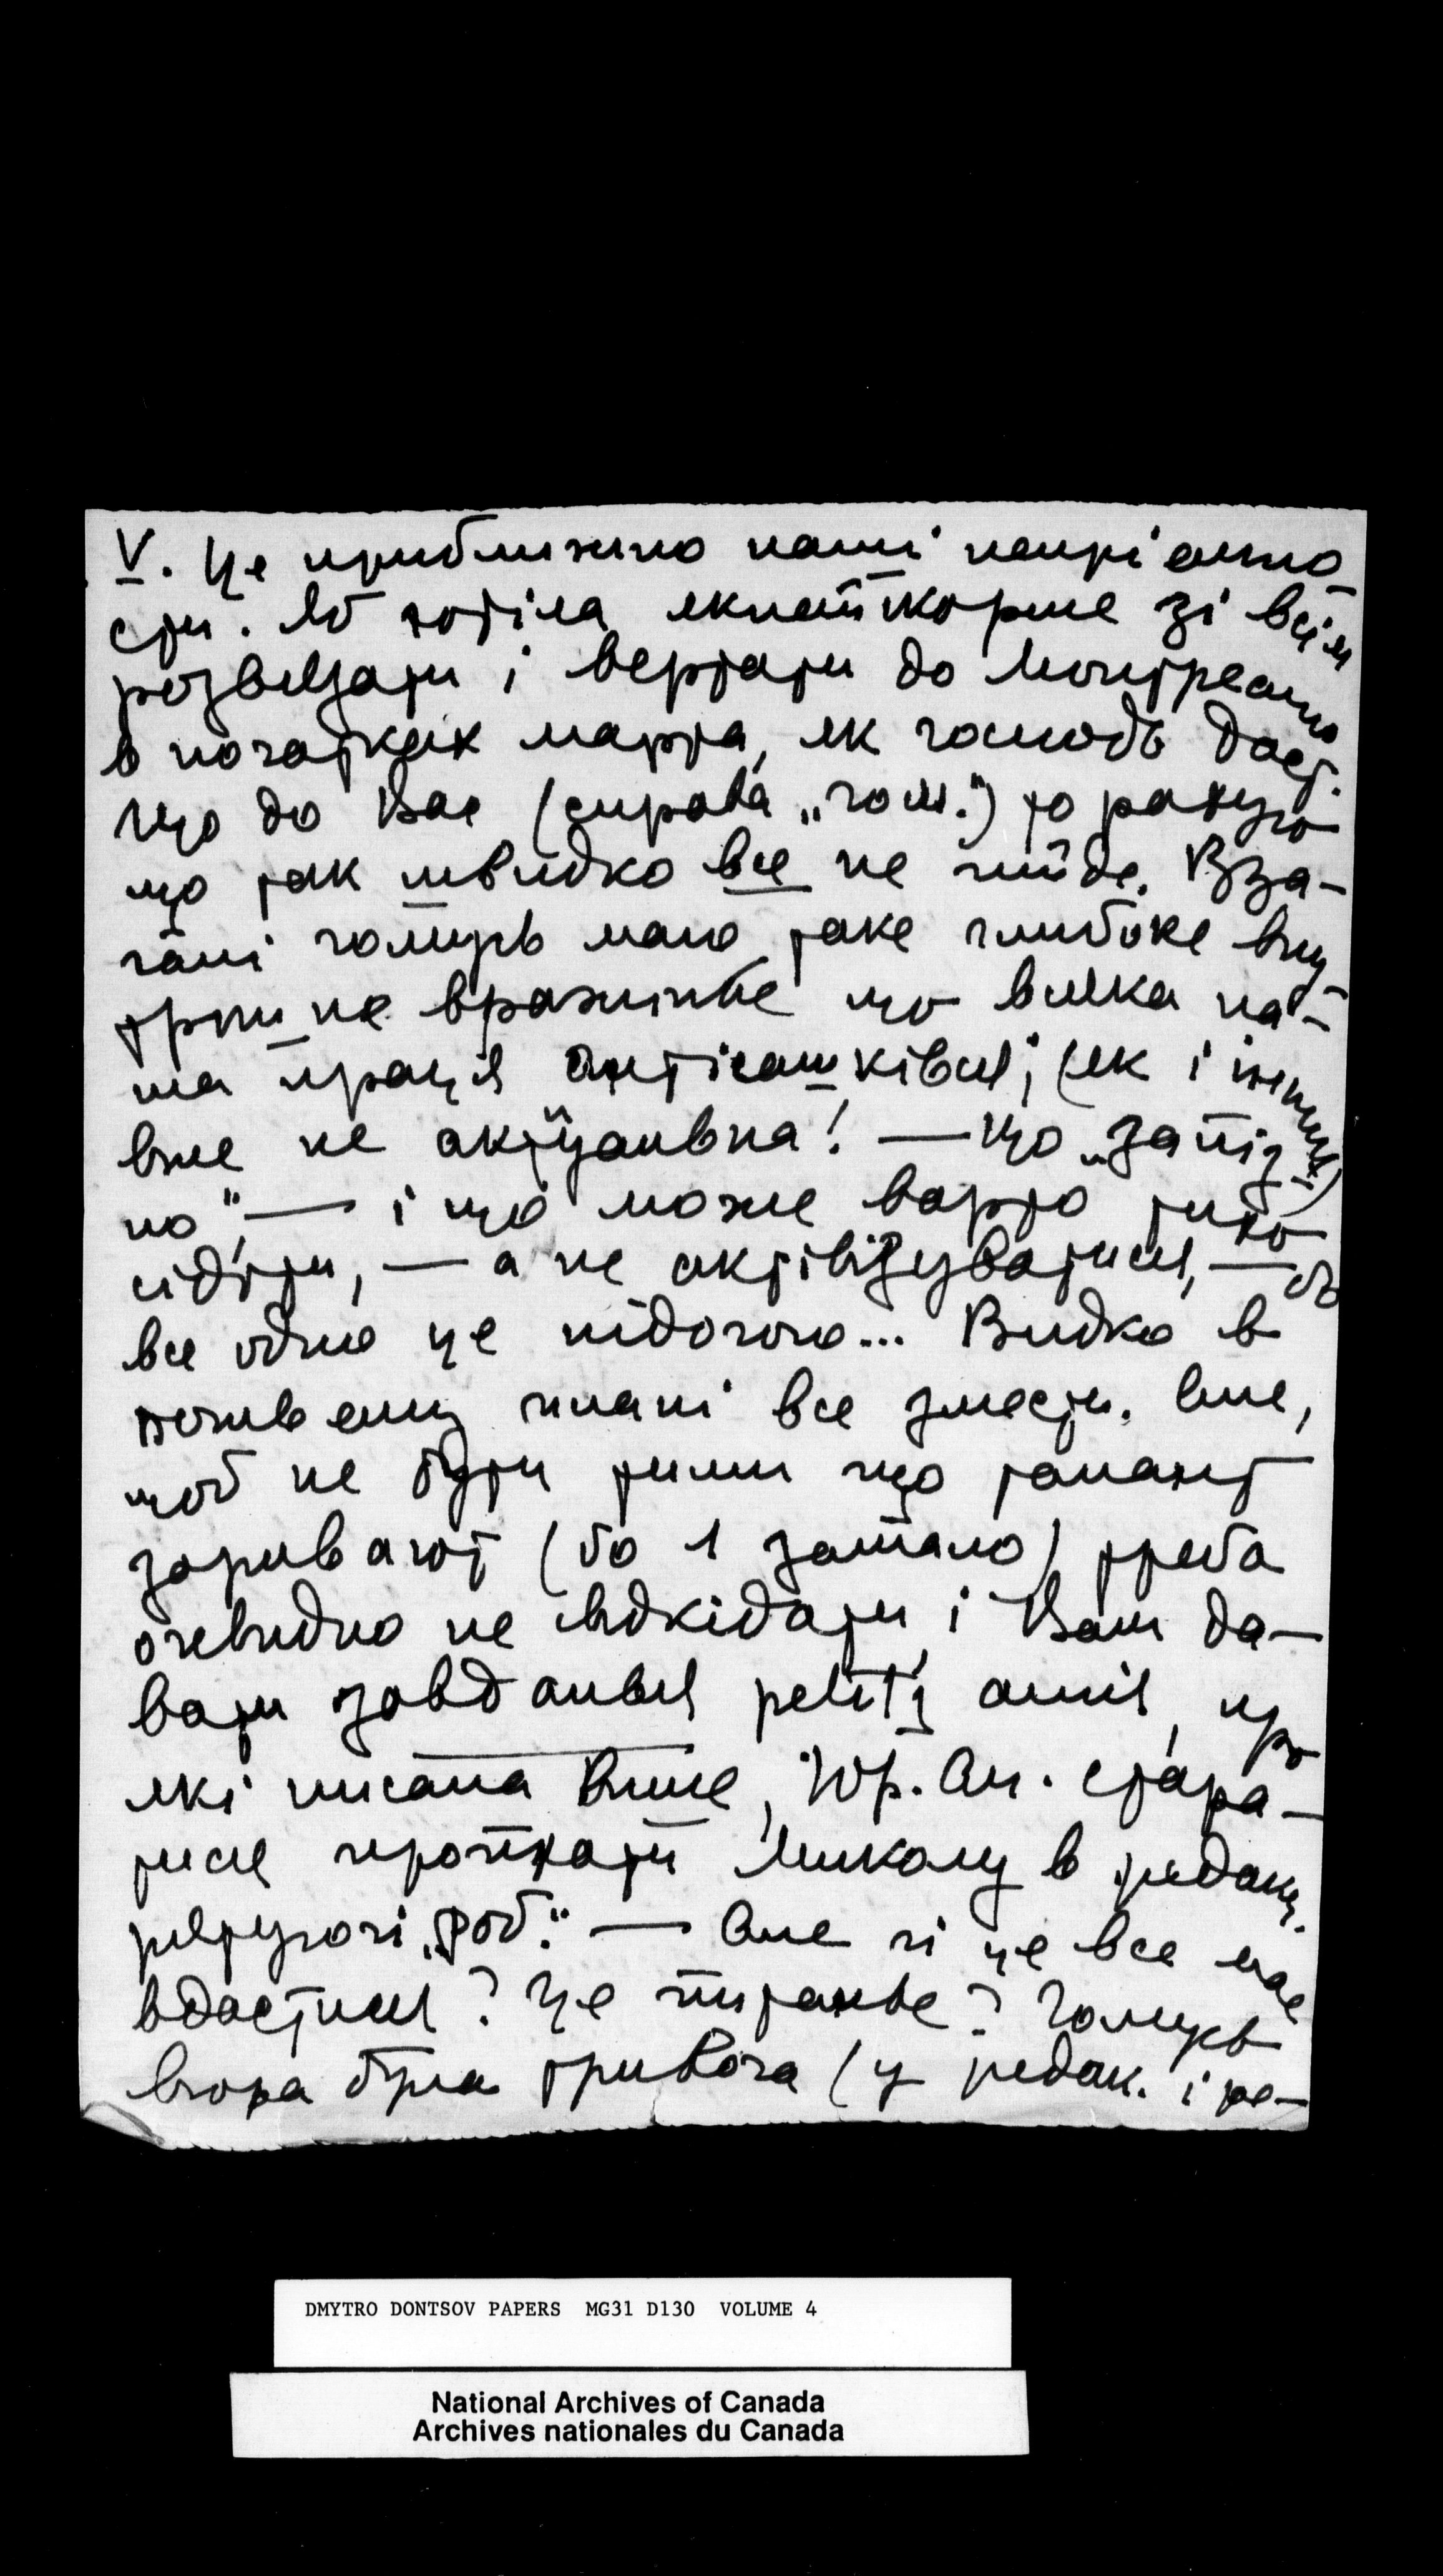 V. Це приближно наші неприємно-
сти. Я б хотіла якнайскорше зі всім
розвязати і вертати до Монтреалю
в початках марта, як господь дасть.
Що до Вас (справа „гол.") то рахую
що так швидко все не піде. Вза-
галі чомусь маю таке глибоке вну
трішнє вражіннє що всяка на-
ша праця (як і інших)
вже не актуальна! — Що „запіз
но", — і що може варто тихо
сідіти, — а не актівізуватися, — бо
все одно це нідочого... Видко в
божьему плані все змести. Але,
щоб не бути тими що талант
заривают (бо 1 замало) треба
очевидно не відкідати і Вам да-
вати завдання petitj amis, про
які писала вище, Юр. Ан. стара-
тися пропхати Миколу в редакц.
рятуючі „Роб." — Але чі це все має
вдастися? Це питаннє? Чомусь
вчора була тривога (у редак. і ре-
DMYTRO DONTSOV PAPERS MG31 D130 VOLUME 4
National Archives of Canada
Archives nationales du Canada